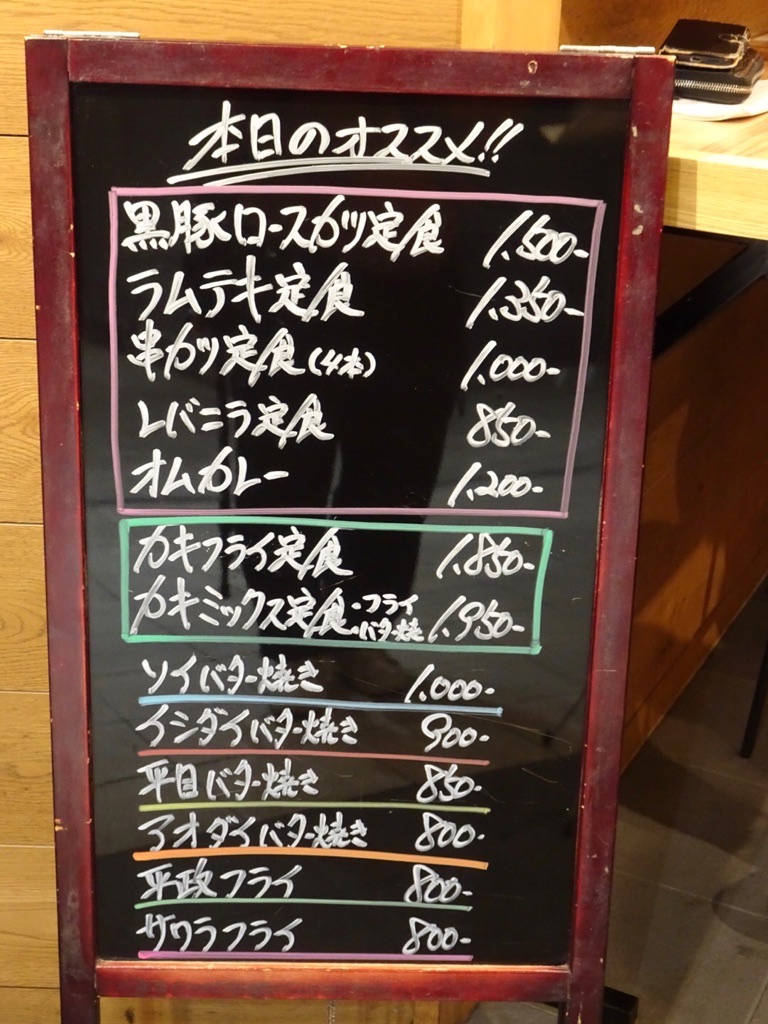 本日のオススメ!!
黒豚ロースカツ定食 1,500-
ラムテキ定食 1,350-
串カツ定食(4本) 1,000-
レバニラ定食 850-
オムカレー 1,200-
カキフライ定食 1,850-
カキミックス定食 ・フライ ・バター焼 1,950-
ソイバター焼き 1,000-
イシダイバター焼き 900-
平目バター焼き 850-
アオダイバター焼き 800-
平政フライ 800-
サワラフライ 800-